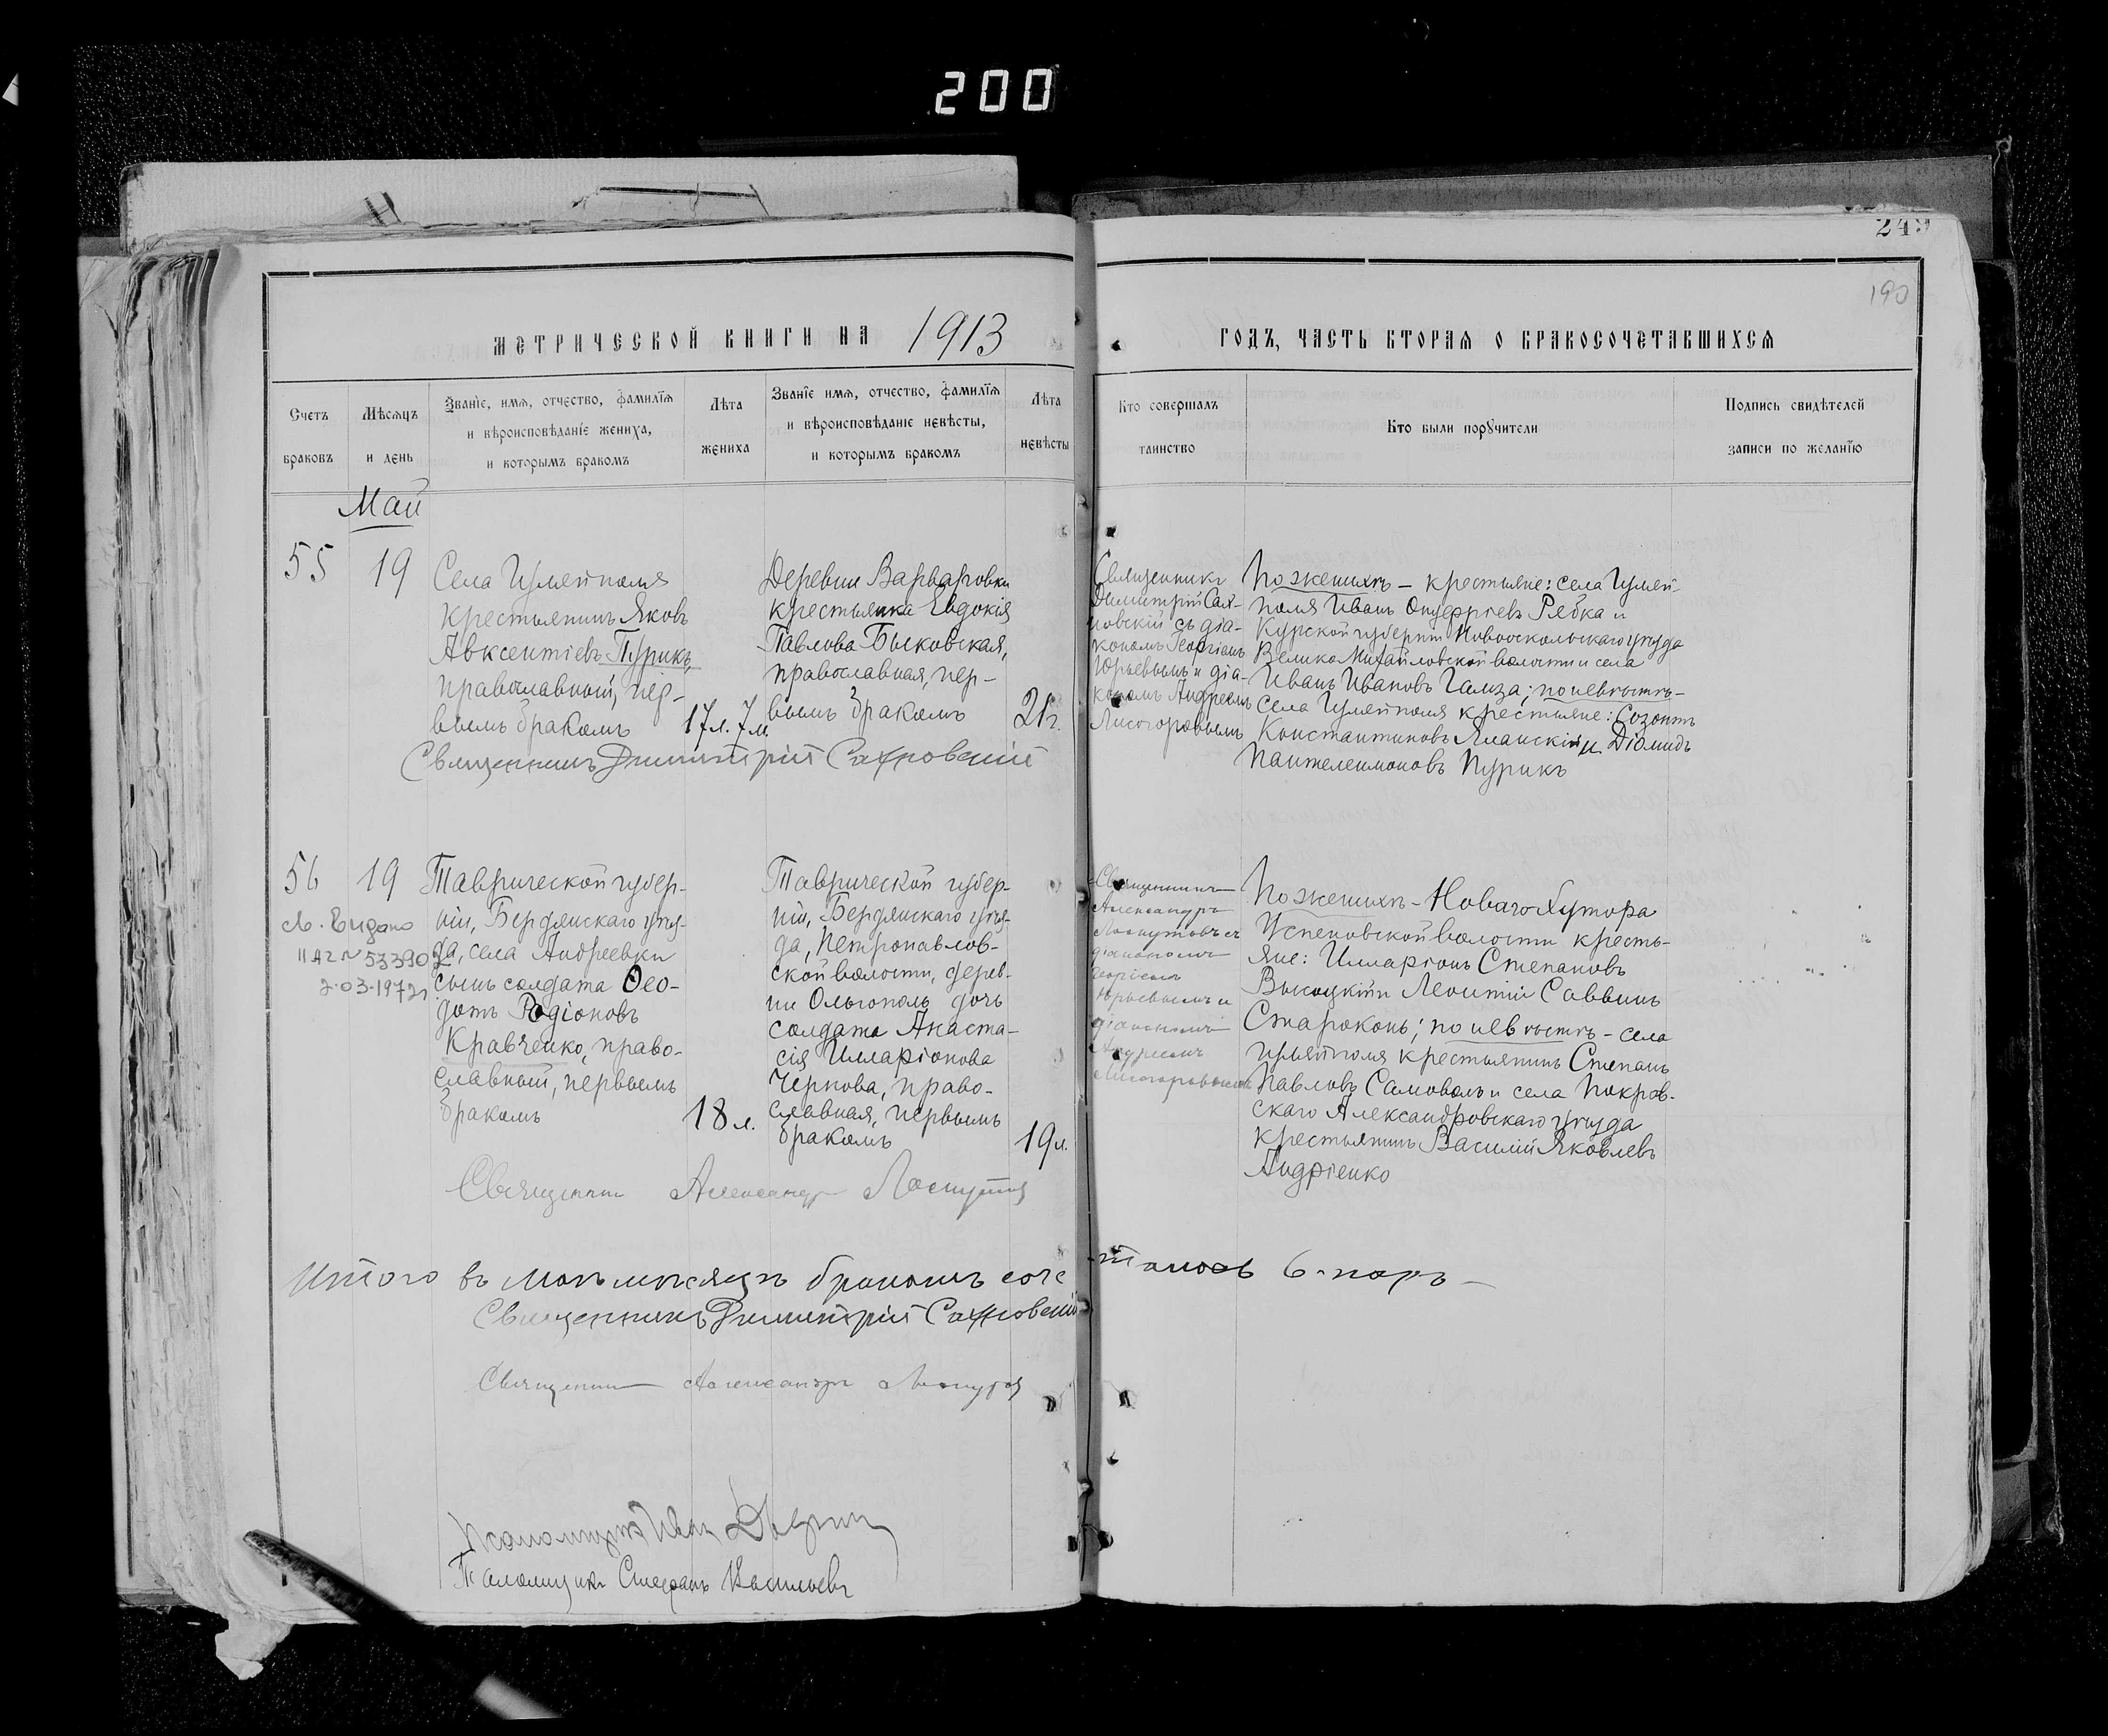 200
249
190
МЕТРИЧЕСКОЙ КНИГИ НА 1913
ГОДЪ, ЧАСТЬ ВТОРАЯ О БРАКОСОЧЕТАВШИХСЯ
Счетъ браковъ
Мѣсяцъ и день
Званіе, имя, отчество, фамилія
и вѣроисповѣданіе жениха,
и которымъ бракомъ
Лѣта жениха
Званіе имя, отчество, фамилія
и вѣроисповѣданіе невѣсты,
и которымъ бракомъ
Лѣта невѣсты
Кто совершалъ
таинство
Кто были поручители
Подпись свидѣтелей
записи по желанію
Май
55
19
Села Гуляйполя
крестьянинъ Яковъ
Авксентіевъ Пурикъ,
православный, пер-
вымъ бракомъ
17 л. 7 м.
Деревни Варваровки
крестьянка Евдокія
Павлова Быковская,
православная, пер-
вымъ бракомъ
21 г.
Священникъ
Димитрій Сах-
новскій съ діа-
кономъ Георгіемъ
Юрьевымъ и діа-
кономъ Андреемъ
Лисогоровымъ
По женихѣ – крестьяне: села Гуляй-
поля Иванъ Онуфріевъ Рябка и
Курской губерніи Новооскольскаго уѣзда
Велико Михайловской волости и села
Иванъ Ивановъ Гамза; по невѣстѣ –
села Гуляйполя крестьяне: Созонтъ
Константиновъ Яланскій и Діомидъ
Пантелеимоновъ Пурикъ
Священникъ Димитрій Сахновскій
56
19
2-03-1972
Таврической губер-
ніи, Бердянскаго уѣз-
да, села Андреевки
сынъ солдата Ѳео-
дотъ Родіоновъ
Кравченко, право-
славный, первымъ
бракомъ
18 л.
Таврической губер-
ніи, Бердянскаго уѣз-
да, Петропавлов-
ской волости, дерев-
ни Ольгополь дочь
солдата Анаста-
сія Илларіонова
Черкова, право-
славная, первымъ
бракомъ
19 л.
Священникъ
Александръ
Лоскутовъ съ
діакономъ
Георгіемъ
Юрьевымъ и
діакономъ
Андреемъ
Лисогоровымъ
По женихѣ – Новаго Хутора
Успеновской волости кресть-
яне: Илларіонъ Степановъ
Высоцкій и Леонтій Саввинъ
Староконь; по невѣстѣ – села
Гуляйполя крестьянинъ Степанъ
Павловъ Самоволъ и села Покров-
скаго Александровскаго уѣзда
крестьянинъ Василій Яковлевъ
Андріенко
Священникъ Александръ Лоскутовъ
Итого въ маѣ мѣсяцѣ бракомъ соче
талось 6 паръ –
Священникъ Димитрій Сахновскій
Священникъ Александръ Лоскутовъ
Псаломщикъ Иванъ
Псаломщикъ Стефанъ Васильевъ